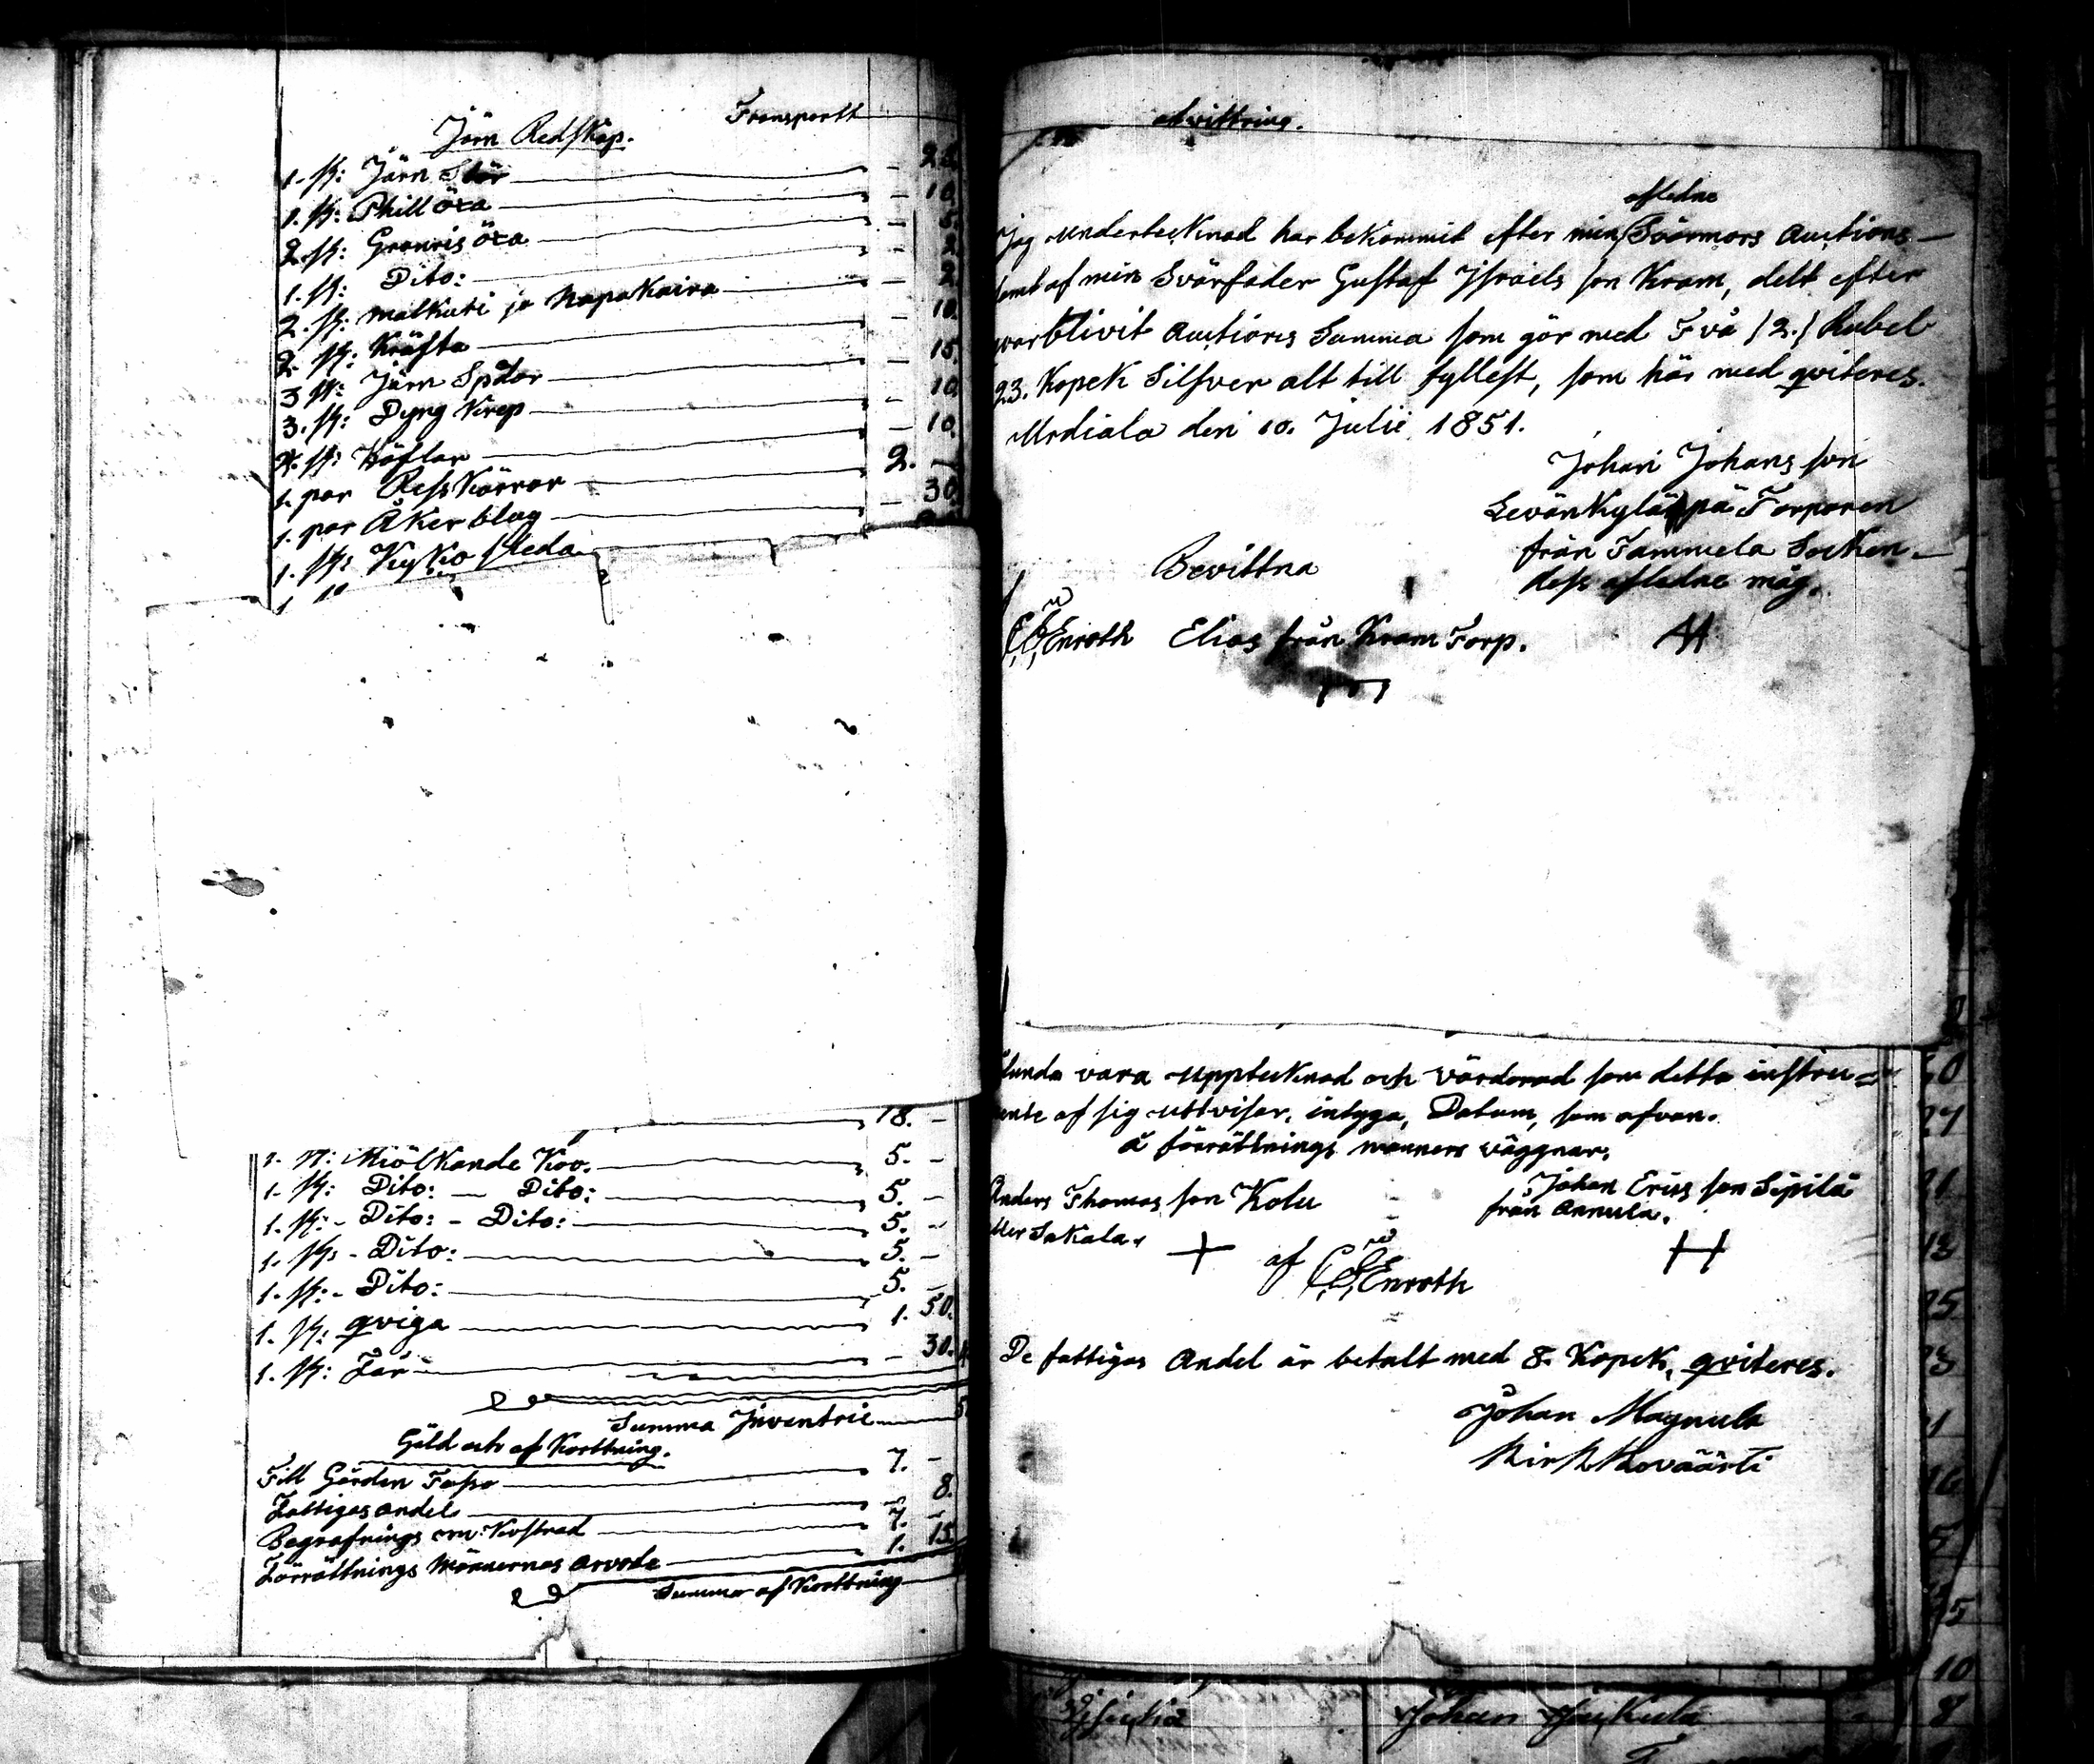 Transportt
Järn Redskap.
1. st: Järn Stör — 25.
1. st: Skill öxa — 10.
2. st: Granris öxa — 5.
1. st: Dito: — 2.
2. st: malkuri ja Napakaira — 2.
2. st: Kräfta — 10.
3 st: Järn Spdar — 15.
3. st: Dyng Krep — 10.
4. st: Höflar — 10.
1. par Ress Kärror 2. —
1. par Åker blog — 30.
1. st: Kyrko sleda
1
18. -
1. st: Miölkande Koo. 5. -
1. st: Dito: — Dito: 5. -
1. st: - Dito: - Dito: 5. -
1. st: - Dito: 5. -
1. st: - Dito: 5. -
1. st: qviga 1. 50.
1. st: Får — 30.
Summa Inventrie
Gäld och af Korttning.
Till Gården Tapo 7. -
Fattiges andel — 8.
Begrafnings om Kostnad 7. -
Förrättnings Männernas arvode 1. 15.
Summa af Korttning
afwittring.
afledne
Jag undertecknad har bekommit efter min Svärmors Auctions —
af min Svärfader Gustaf Israels son Kram, delt efter
blivit Auctions Summa som gör med Två (2.) Rubel
23. Kopek Silfver alt till fyllest, som här med qviteres.
Urdiala den 10. Julii 1851.
Johan Johans son
Levänkylä på Torparen
från Tammela Socken —
dess afledne måg.
Bevittna
Enroth Elias från Kram Torp.
vara upptecknad och värderad som detta instru=
af sig uttvisar, intyga, Datum, som ofvan.
å förrättnings manners väggnar.
Anders Thomas son Kolu
Johan Erics son Sipilä
från Annula.
eller Sakala.
af Enroth
De fattigas Andel är betalt med 8. Kopek, qviteres.
Johan Magnula
Kirkkoväärti
Johan